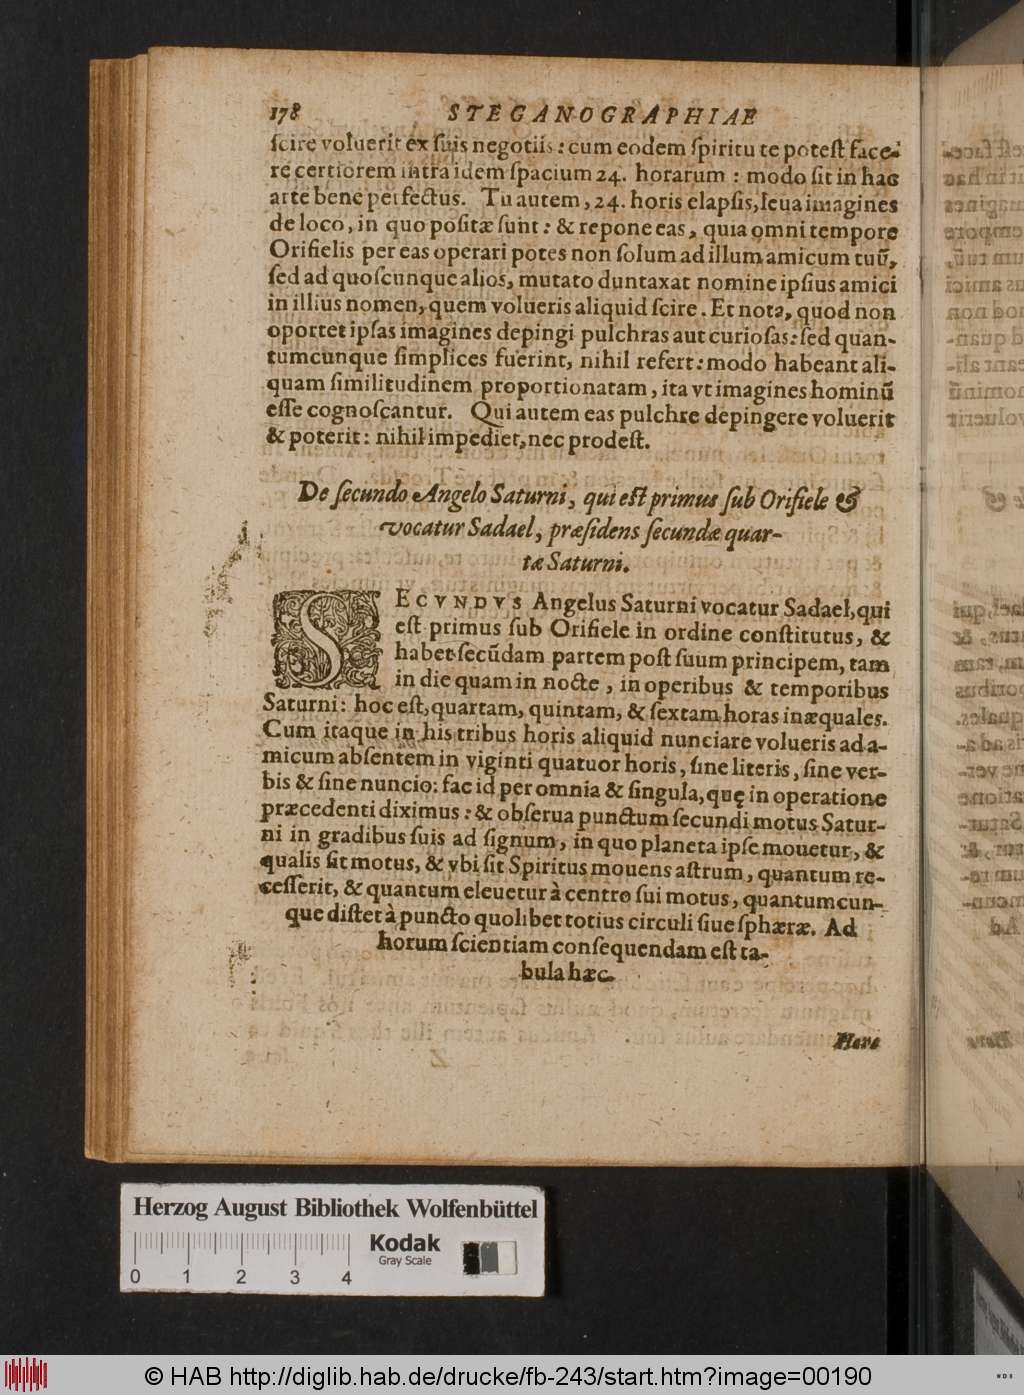 178 STEGANOGRAPHIAE
ſcire voluerit ex ſuis negotiis: cum eodem ſpiritu te poteſt face-
re certiorem intra idem ſpacium 24. horarum : modo ſit in hac
arte bene perfectus. Tu autem, 24. horis elapſis, leua imagines
de loco, in quo poſitæ ſunt: & repone eas, quia omni tempore
Orifielis per eas operari potes non ſolum ad illum amicum tuũ,
ſed ad quoſcunque alios, mutato duntaxat nomine ipſius amici
in illius nomen, quem volueris aliquid ſcire. Et nota, quod non
oportet ipſas imagines depingi pulchras aut curioſas: ſed quan-
tumcunque ſimplices fuerint, nihil refert: modo habeant ali-
quam ſimilitudinem proportionatam, ita vt imagines hominũ
eſſe cognoſcantur. Qui autem eas pulchre depingere voluerit
& poterit: nihil impediet, nec prodeſt.
De ſecundo Angelo Saturni, qui eſt primus ſub Orifiele &
vocatur Sadael, præſidens ſecundæ quar-
tæ Saturni.
SECVNDVS Angelus Saturni vocatur Sadael, qui
eſt primus ſub Orifiele in ordine conſtitutus, &
habet ſecũdam partem poſt ſuum principem, tam
in die quam in nocte, in operibus & temporibus
Saturni: hoc eſt, quartam, quintam, & ſextam horas inæquales.
Cum itaque in his tribus horis aliquid nunciare volueris ad a-
micum abſentem in viginti quatuor horis, ſine literis, ſine ver-
bis & ſine nuncio: fac id per omnia & ſingula, quę in operatione
præcedenti diximus: & obſerua punctum ſecundi motus Satur-
ni in gradibus ſuis ad ſignum, in quo planeta ipſe mouetur, &
qualis ſit motus, & vbi ſit Spiritus mouens aſtrum, quantum re-
ceſſerit, & quantum eleuetur à centro ſui motus, quantumcun-
que diſtet à puncto quolibet totius circuli ſiue ſphæræ. Ad
horum ſcientiam conſequendam eſt ta-
bula hæc.
Herzog August Bibliothek Wolfenbüttel
Kodak
Gray Scale
0 1 2 3 4
© HAB http://diglib.hab.de/drucke/fb-243/start.htm?image=00190